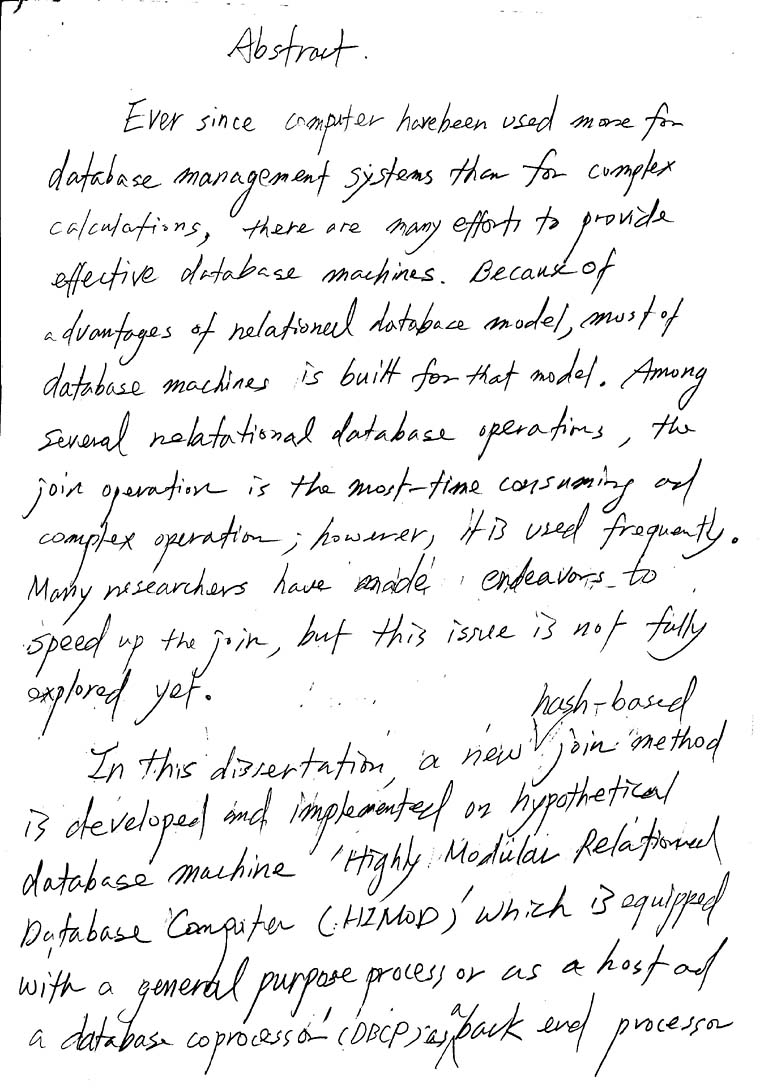 Abstract.
Ever since computer havebeen used more for
database management systems than for complex
calculations, there are many efforts to provide
effective database machines. Because of
advantages of relational database model, most of
database machines is built for that model. Among
several relatational database operations, the
join operation is the most-time consuming ad
complex operation; however, it is used frequently.
Many researchers have made endeavors to
speed up the join, but this issue is not fully
explored yet.
hash-based
In this dissertation, a new join method
is developed and implemented on hypothetical
database machine 'Highly Modular Relational
Database Computer (HIMOD)' which is equipped
with a general purpose processor as a host ad
a database coprocessor (DBCP) as a back end processor